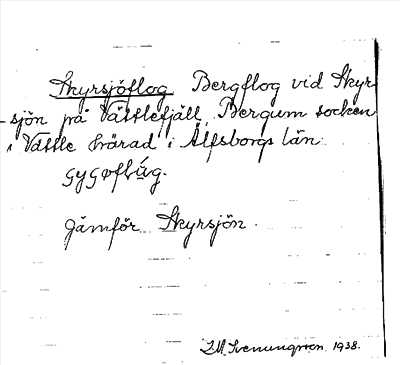 Skyrsjöflog Bergflog vid Skyr-
sjön på Vättlefjäll, Bergum socken
i Vättle härad i Älfsborgs län.
Jämför Skyrsjön.
1938.